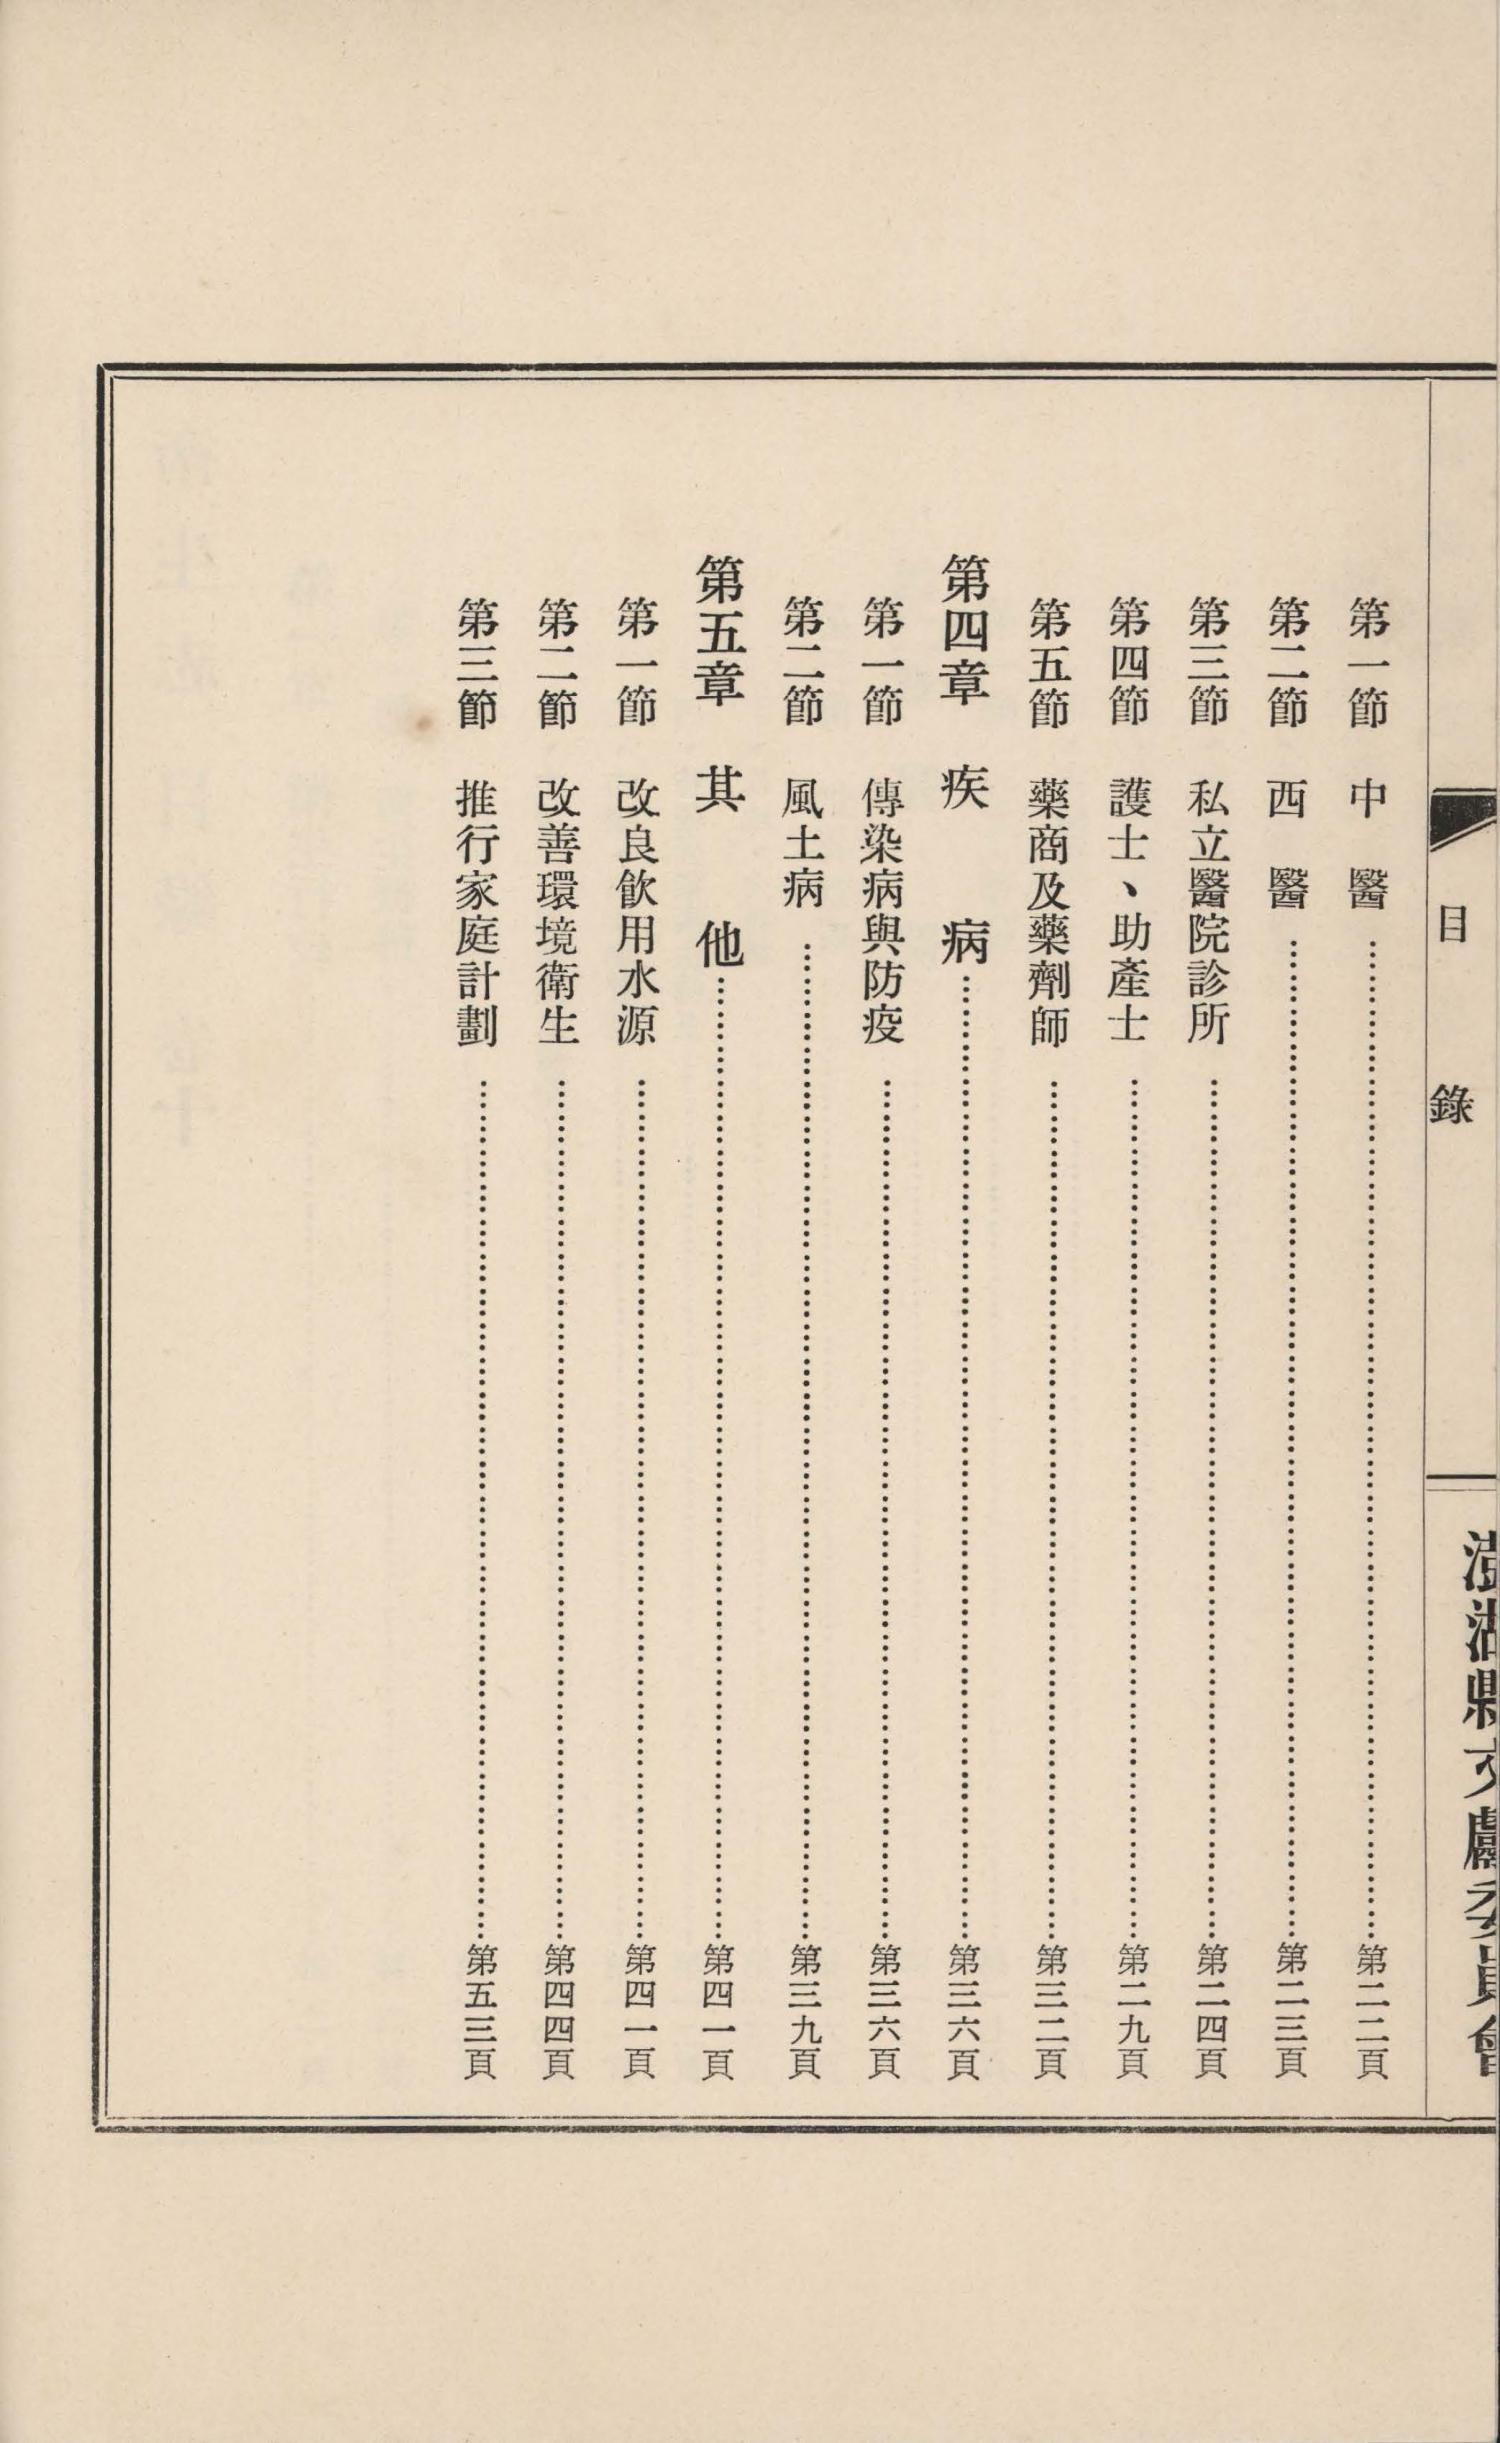 目錄
澎湖縣文獻委員會
第一節　中　醫……第二二頁
第二節　西　醫……第二三頁
第三節　私立醫院診所……第二四頁
第四節　護士、助產士……第二九頁
第五節　藥商及藥劑師……第三二頁
第四章　疾　病……第三六頁
第一節　傳染病與防疫……第三六頁
第二節　風土病……第三九頁
第五章　其　他……第四一頁
第一節　改良飲用水源……第四一頁
第二節　改善環境衛生……第四四頁
第三節　推行家庭計劃……第五三頁